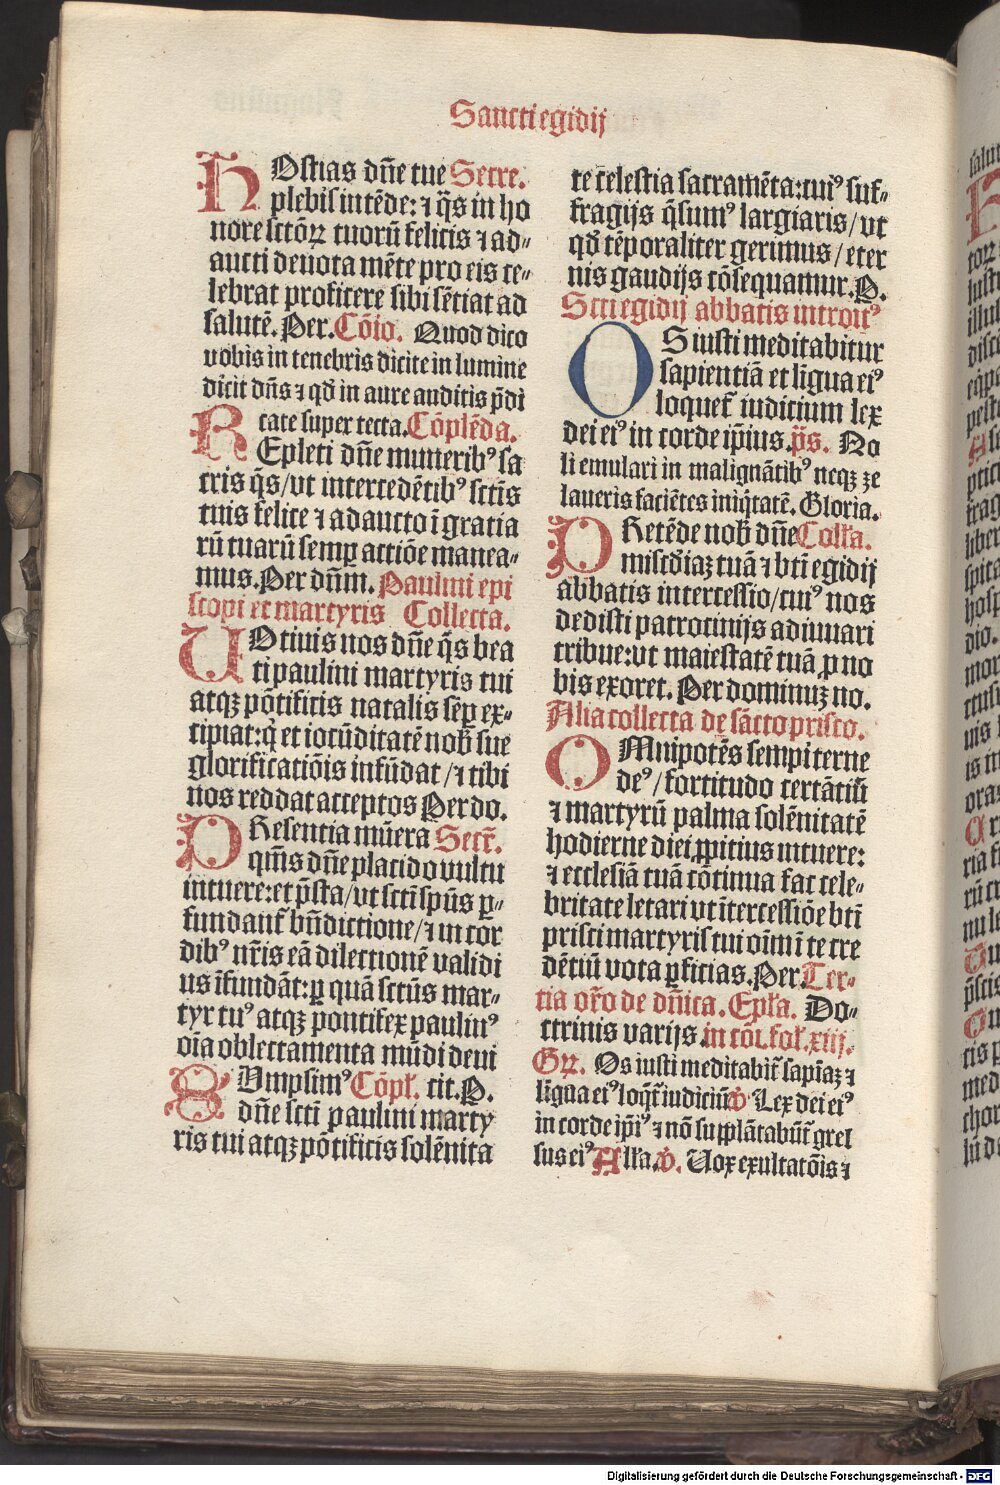 Sancti egidij
HOstias dn̄e tue Secre.
plebis intēde: ⁊ q̄s in ho
nore sctōꝝ tuorū felicis ⁊ ad⸗
aucti deuota mēte pro eis ce⸗
lebrat proficere sibi sētiat ad
salutē. Per. Cōio. Quod dico
vobis in tenebris dicite in lumine
dicit dn̄s ⁊ qđ in aure auditis p̄di
cate super tecta. Cōplēda.
REpleti dn̄e muneribꝰ sa
cris q̄s/ vt intercedētibꝰ sctīs
tuis felice ⁊ adaucto ī gratia
rū tuarū semꝑ actiōe manea⸗
mus. Per dn̄m. Paulini epi
scopi et martyris Collecta.
VOtiuis nos dn̄e q̄s bea
ti paulini martyris tui
atqꝫ pōtificis natalis sēꝑ ex⸗
cipiat: q̇ et iocūditatē nob̄ sue
glorificatiōis infūdat/ ⁊ tibi
nos reddat acceptos Per do.
PResentia mūera Secr̄.
qm̄s dn̄e placido vultu
intuere: et p̄sta/ vt scti spūs ꝑ⸗
fundant̄ bn̄dictione/ ⁊ in cor
dibꝰ nr̄is eā dilectionē validi
us īfundāt: ꝑ quā sctūs mar⸗
tyr tuꝰ atqꝫ pontifex paulinꝰ
oīa oblectamenta mūdi deui
SVmpsimꝰ Cōpl̄. cit. P.
dn̄e scti paulini marty
ris tui atqꝫ pōtificis solēnita
te celestia sacramēta: tuiꝰ suf⸗
fragijs q̄sumꝰ largiaris/ vt
qđ tēporaliter gerimus/ eter
nis gaudijs cōsequamur. P.
Scti egidij abbatis introitꝰ
OS iusti meditabitur
sapientiā et līgua eiꝰ
loquet̄ iudicium lex
dei eiꝰ in corde ip̄ius. p̄s. No
li emulari in malignātibꝰ neqꝫ ze
laueris faciētes iniq̇tatē. Gloria.
PRetēde nob̄ dn̄e Coll̄a.
miscđiaꝫ tuā ⁊ bt̄i egidij
abbatis intercessio/ cuiꝰ nos
dedisti patrocinijs adiuuari
tribue: vt maiestatē tuā ꝓ no
bis exoret. Per dominuꝫ no.
Alia collecta de sācto prisco.
OMnipotēs sempiterne
deꝰ/ fortitudo certātiū
⁊ martyrū palma solēnitatē
hodierne diei ꝓpitius intuere:
⁊ ecclesiā tuā cōtinua fac cele⸗
britate letari vt ītercessiōe bt̄i
prisci martyris tui oīm ī te cre
dētiū vota ꝑficias. Per. Ter⸗
cia or̄o de dn̄ica. Epl̄a. Do⸗
ctrinis varijs. in cōi. fol̄. xiij.
Gꝝ. Os iusti meditabit̄ sapīaꝫ ⁊
līgua eiꝰ loqt̄ iudiciū ℣ Lex dei eiꝰ
in corde ip̄iꝰ ⁊ nō supplātabūt̄ gres
sus eiꝰ All̄a. ℣. Uox exultatōis ⁊
Digitalisierung gefördert durch die Deutsche Forschungsgemeinschaft - DFG